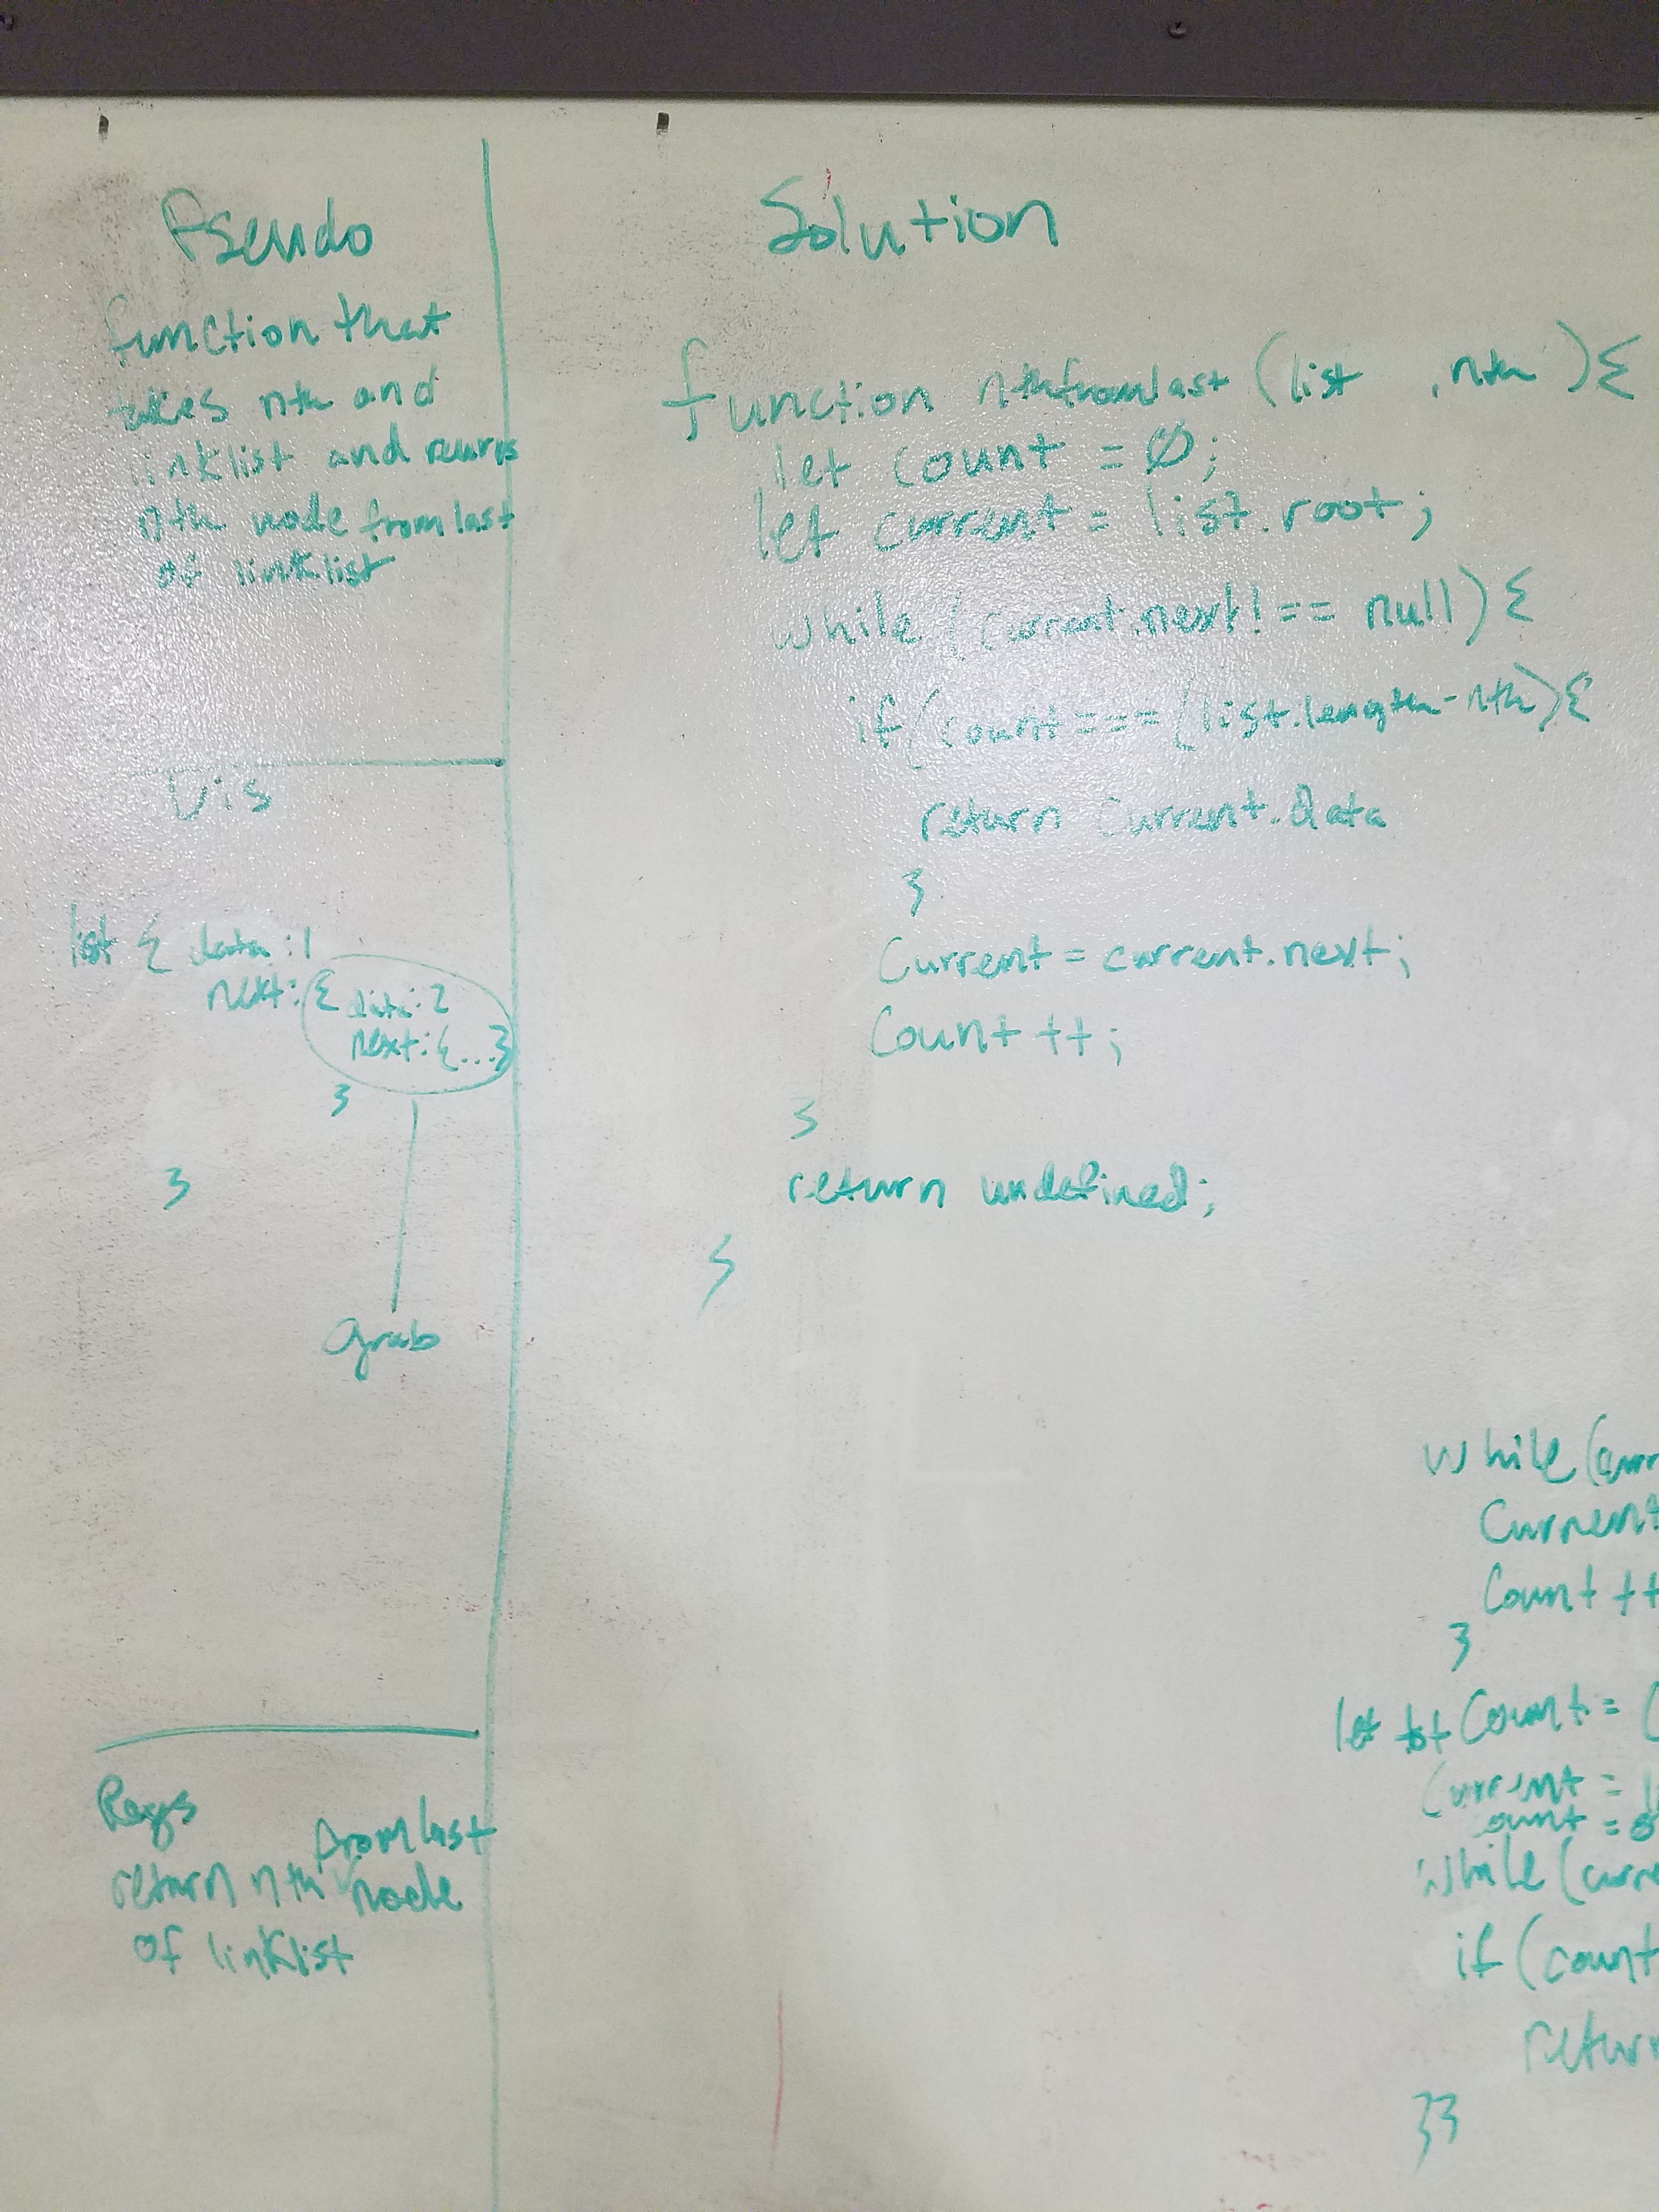 Pseudo
function that
takes nth and
linklist and reurns
nth node from last
of linklist
Vis
list { data : 1
next: { data: 2
next: {...}
}
}
grab
Reqs
from last
return nth node
of linklist
Solution
function nthfromlast (list , nth ) {
let count = 0;
let current = list.root;
while (current.next !== null) {
if (count === (list.length - nth) {
return current.data
}
Current = current.next;
Count ++;
}
return undefined;
}
while (curr
Current
Count ++
}
let tot Count = (
Current = l
count = 0
while (curre
if (count
return
}}